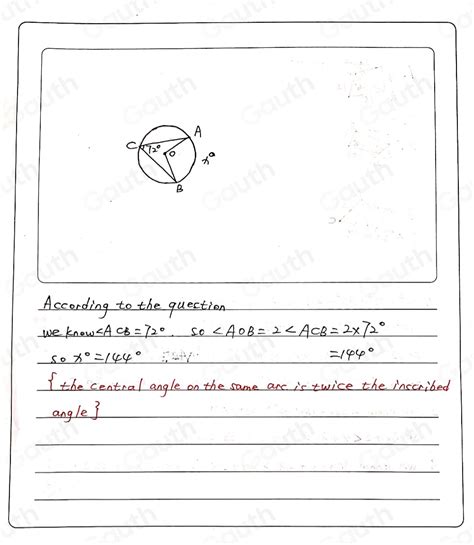 A
C 72° O x°
B
According to the question
we know<ACB=72°. so <AOB=2<ACB=2x72°
so x°=144° =144°
{the central angle on the same arc is twice the inscribed
angle}